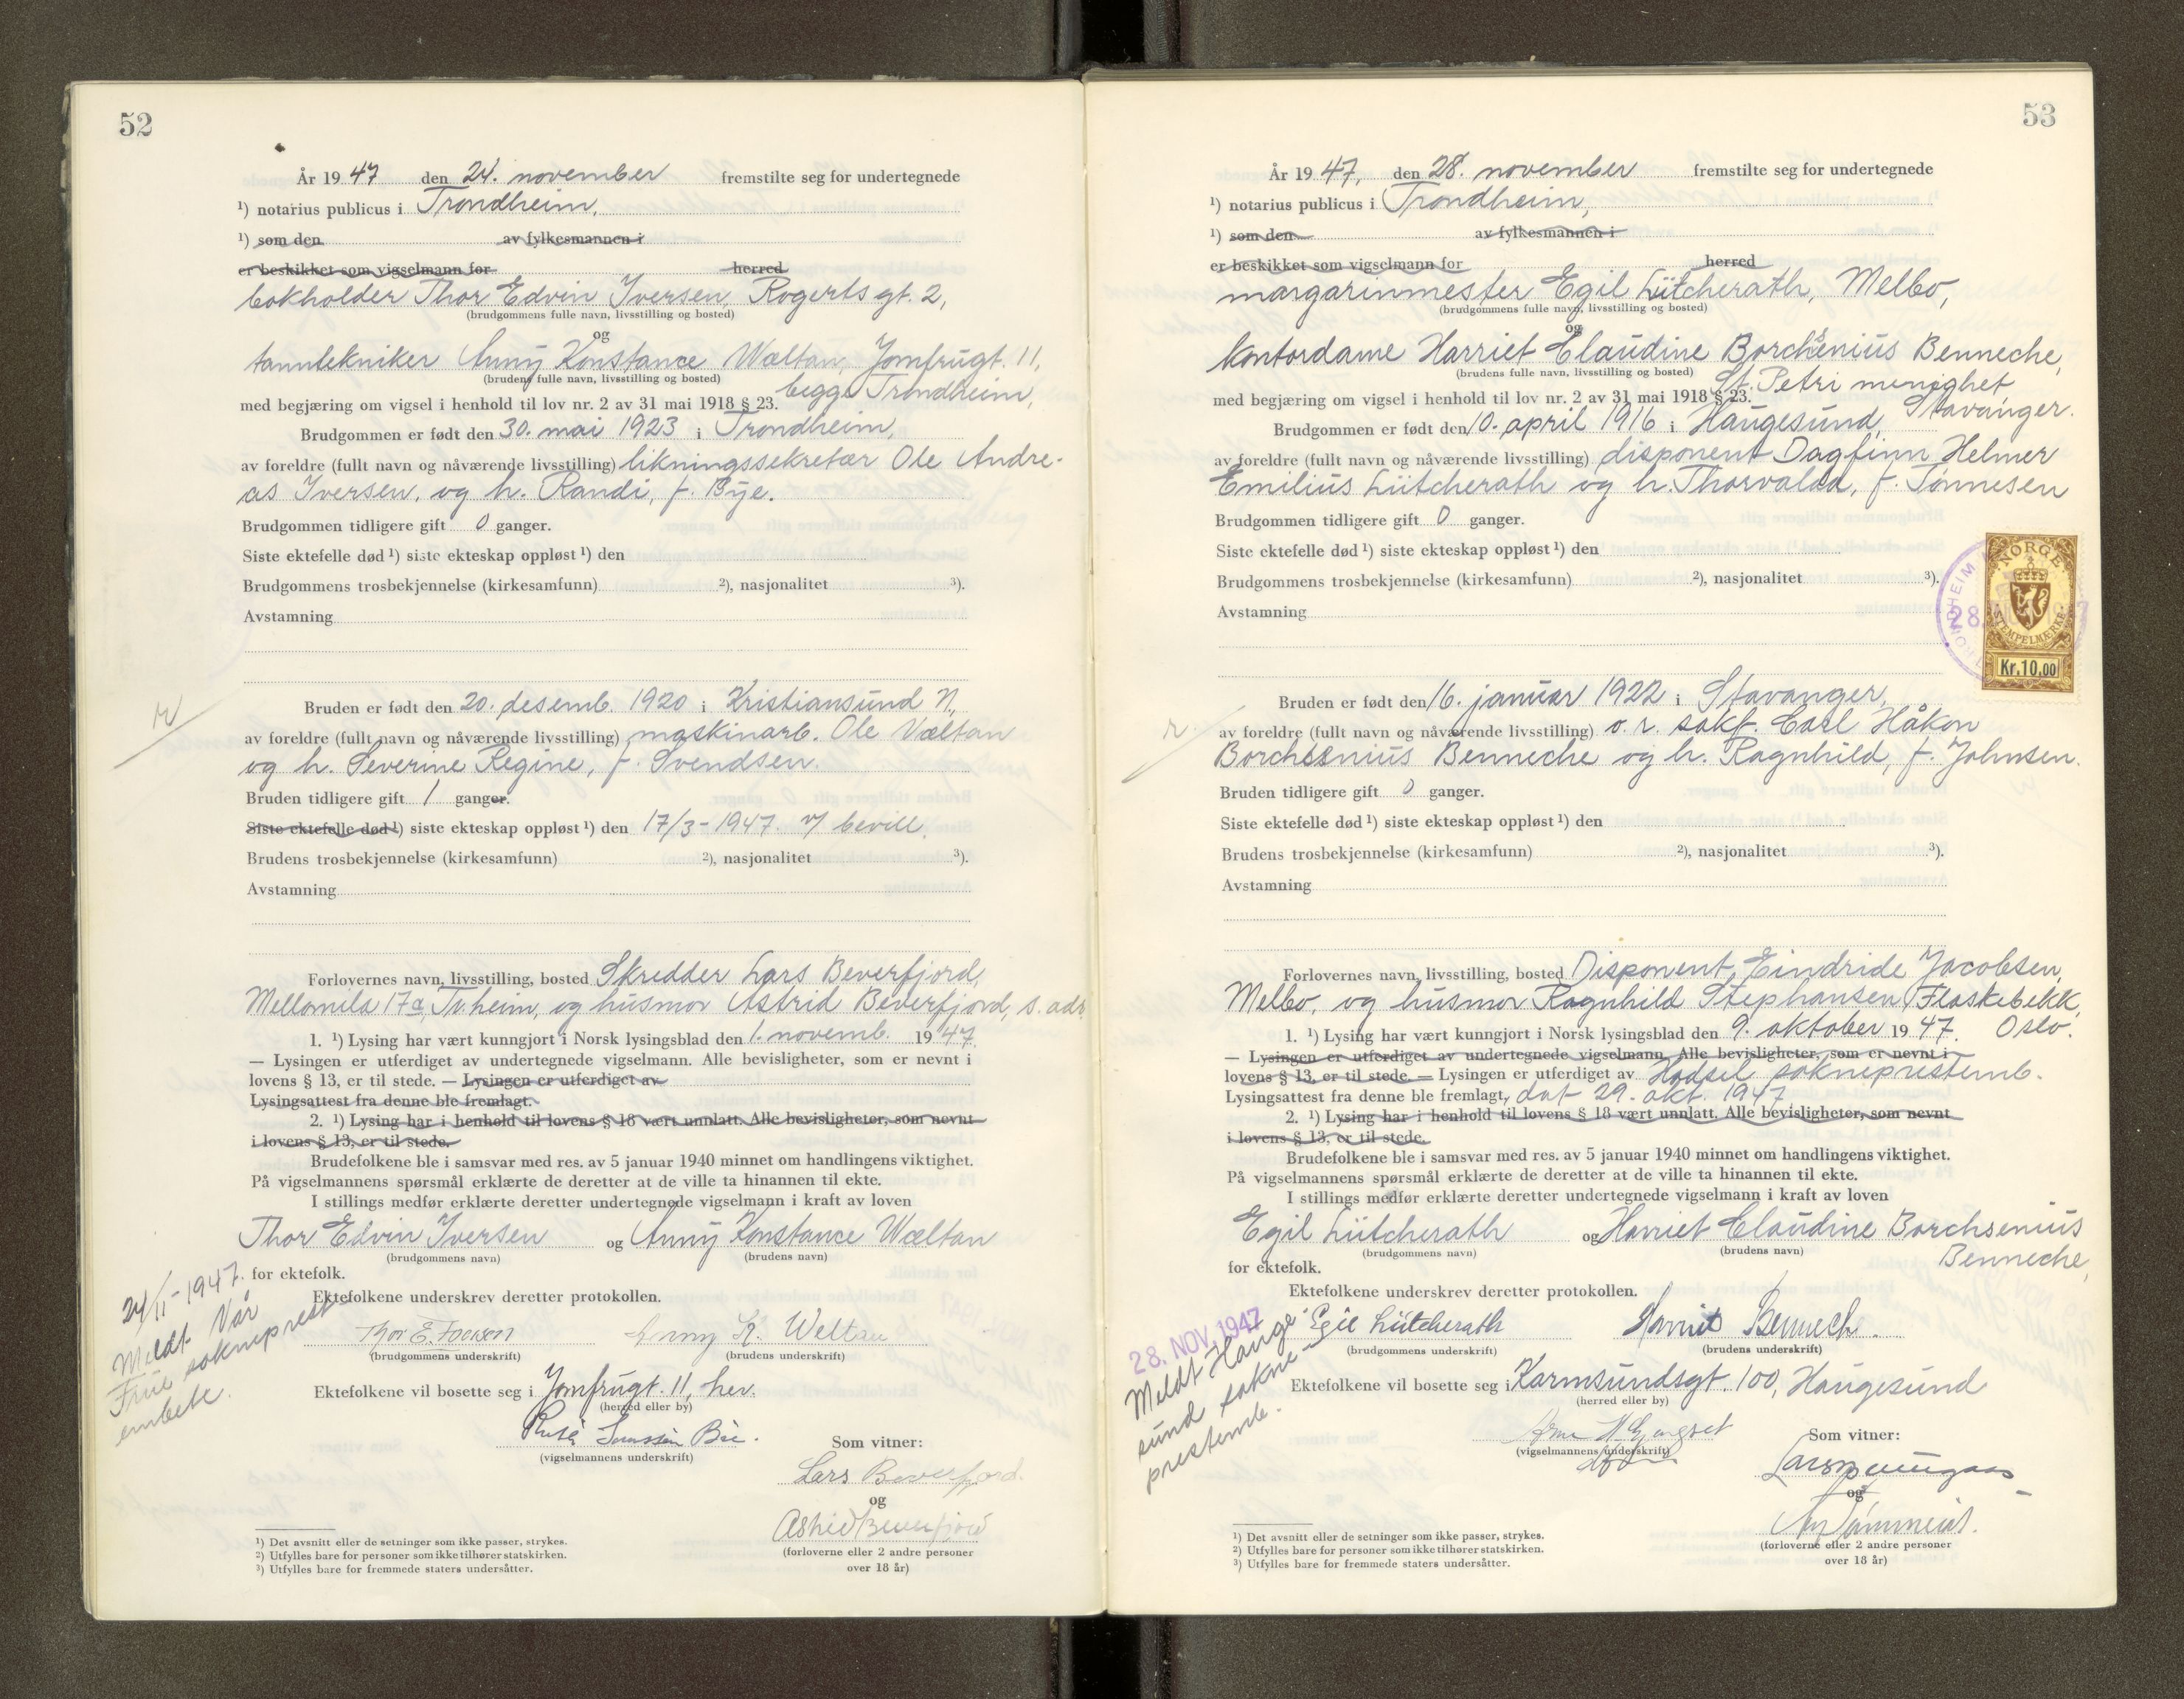 52
År 1947 den 24. november fremstilte seg for undertegnede
¹) notarius publicus i Trondheim,
¹) som den av fylkesmannen i
er beskikket som vigselmann for herred
bokholder Thor Edvin Iversen, Rogerts gt. 2,
(brudgommens fulle navn, livsstilling og bosted)
og
tanntekniker Anny Konstance Wæltan, Jomfrugt. 11,
(brudens fulle navn, livsstilling og bosted)
begge Trondheim,
med begjæring om vigsel i henhold til lov nr. 2 av 31 mai 1918 § 23.
Brudgommen er født den 30. mai 1923 i Trondheim,
av foreldre (fullt navn og nåværende livsstilling) likningssekretær Ole Andre-
as Iversen, og h. Randi, f. Bye.
Brudgommen tidligere gift 0 ganger.
Siste ektefelle død ¹) siste ekteskap oppløst ¹) den
Brudgommens trosbekjennelse (kirkesamfunn) ²), nasjonalitet ³).
Avstamning
Bruden er født den 20. desemb. 1920 i Kristiansund N.,
av foreldre (fullt navn og nåværende livsstilling) maskinarb. Ole Wæltan
og h. Severine Regine, f. Svendsen.
Bruden tidligere gift 1 ganger.
Siste ektefelle død ¹) siste ekteskap oppløst ¹) den 17/3-1947 v/ bevill.
Brudens trosbekjennelse (kirkesamfunn) ²), nasjonalitet ³).
Avstamning
Forlovernes navn, livsstilling, bosted Skredder Lars Beverfjord,
Mellomila 17a, Tr.heim, og husmor Astrid Beverfjord, s. adr.
1. ¹) Lysing har vært kunngjort i Norsk lysingsblad den 1. novemb. 1947.
— Lysingen er utferdiget av undertegnede vigselmann. Alle bevisligheter, som er nevnt i
lovens § 13, er til stede. — Lysingen er utferdiget av
Lysingsattest fra denne ble fremlagt.
2. ¹) Lysing har i henhold til lovens § 18 vært unnlatt. Alle bevisligheter, som nevnt
i lovens § 13, er til stede.
Brudefolkene ble i samsvar med res. av 5 januar 1940 minnet om handlingens viktighet.
På vigselmannens spørsmål erklærte de deretter at de ville ta hinannen til ekte.
I stillings medfør erklærte deretter undertegnede vigselmann i kraft av loven
Thor Edvin Iversen og Anny Konstance Wæltan
(brudgommens navn) (brudens navn)
for ektefolk.
24/11-1947.
Meldt Vår
Frue sokneprest-
embete.
Ektefolkene underskrev deretter protokollen.
Thor E. Anny K. Weltan
(brudgommens underskrift) (brudens underskrift)
Ektefolkene vil bosette seg i Jomfrugt. 11, her.
(herred eller by)
(vigselmannens underskrift)
Som vitner:
Lars Beverfjord.
og
Astrid Beverfjord
(forloverne eller 2 andre personer
over 18 år)
¹) Det avsnitt eller de setninger som ikke passer, strykes.
²) Utfylles bare for personer som ikke tilhører statskirken.
³) Utfylles bare for fremmede staters undersåtter.
53
År 1947, den 28. november fremstilte seg for undertegnede
¹) notarius publicus i Trondheim,
¹) som den av fylkesmannen i
er beskikket som vigselmann for herred
margarinmester Egil Lütcherath, Melbo,
(brudgommens fulle navn, livsstilling og bosted)
og
kontordame Harriet Claudine Borchsenius Benneche,
(brudens fulle navn, livsstilling og bosted)
St. Petri menighet
Stavanger.
med begjæring om vigsel i henhold til lov nr. 2 av 31 mai 1918 § 23.
Brudgommen er født den 10. april 1916 i Haugesund,
av foreldre (fullt navn og nåværende livsstilling) disponent Dagfinn Helmer
Emilius Lütcherath og h. Thorvalda, f. Tønnesen
Brudgommen tidligere gift 0 ganger.
Siste ektefelle død ¹) siste ekteskap oppløst ¹) den
Brudgommens trosbekjennelse (kirkesamfunn) ²), nasjonalitet ³).
Avstamning
NORGE
STEMPELMÆRKE
Kr. 10.00
TRONDHEIM
Bruden er født den 16. januar 1922 i Stavanger,
av foreldre (fullt navn og nåværende livsstilling) o. r. sakf. Carl Håkon
Borchsenius Benneche og h. Ragnhild, f. Johnsen.
Bruden tidligere gift 0 ganger.
Siste ektefelle død ¹) siste ekteskap oppløst ¹) den
Brudens trosbekjennelse (kirkesamfunn) ²), nasjonalitet ³).
Avstamning
Forlovernes navn, livsstilling, bosted Disponent Eindride Jacobsen,
Melbo, og husmor Ragnhild Stephansen, Flaskebekk,
Oslo.
1. ¹) Lysing har vært kunngjort i Norsk lysingsblad den 9. oktober 1947.
— Lysingen er utferdiget av undertegnede vigselmann. Alle bevisligheter, som er nevnt i
lovens § 13, er til stede. — Lysingen er utferdiget av Hadsel sokneprestemb.
Lysingsattest fra denne ble fremlagt, dat 29. okt. 1947
2. ¹) Lysing har i henhold til lovens § 18 vært unnlatt. Alle bevisligheter, som nevnt
i lovens § 13, er til stede.
Brudefolkene ble i samsvar med res. av 5 januar 1940 minnet om handlingens viktighet.
På vigselmannens spørsmål erklærte de deretter at de ville ta hinannen til ekte.
I stillings medfør erklærte deretter undertegnede vigselmann i kraft av loven
Egil Lütcherath og Harriet Claudine Borchsenius
Benneche,
(brudgommens navn) (brudens navn)
for ektefolk.
28. NOV. 1947
Meldt Hauge-
sund sokne-
prestemb.
Ektefolkene underskrev deretter protokollen.
Egil Lütcherath Harriet Bennech.
(brudgommens underskrift) (brudens underskrift)
Ektefolkene vil bosette seg i Karmsundsgt. 100, Haugesund
(herred eller by)
(vigselmannens underskrift)
Som vitner:
og
(forloverne eller 2 andre personer
over 18 år)
¹) Det avsnitt eller de setninger som ikke passer, strykes.
²) Utfylles bare for personer som ikke tilhører statskirken.
³) Utfylles bare for fremmede staters undersåtter.